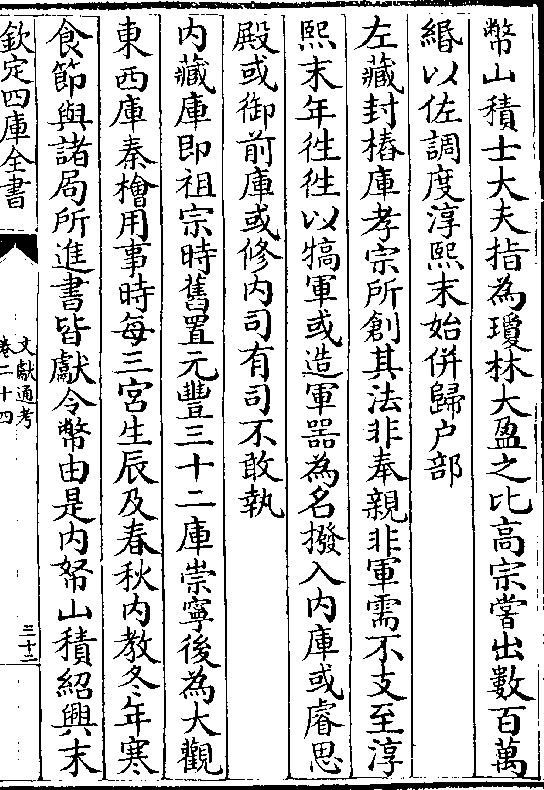 幣山積士大夫指為瓊林大盈之比高宗嘗出數百萬
緡以佐調度淳熙末始併歸户部
左藏封樁庫孝宗所創其法非奉親非軍需不支至淳
熙末年徃徃以犒軍或造軍器為名撥入内庫或睿思
殿或御前庫或修内司有司不敢執
内藏庫即祖宗時舊置元豐三十二庫崇寧後為大觀
東西庫秦檜用事時每三宫生辰及春秋内教冬年寒
食節與諸局所進書皆獻令幣由是内帑山積紹興末
欽定四庫全書
文獻通考
卷二十四
三十二